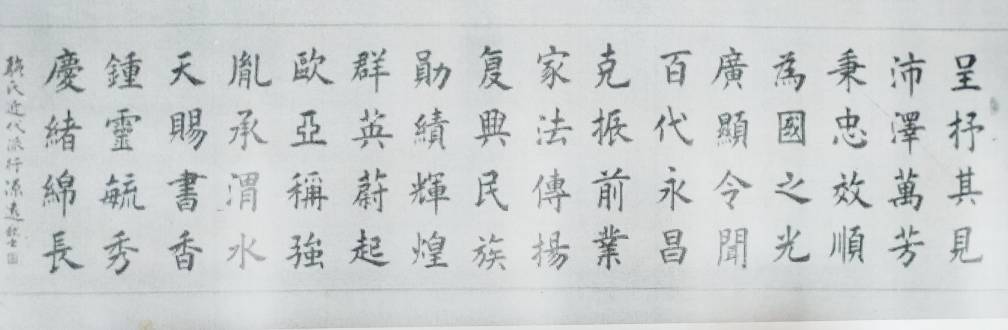 呈抒其見
沛澤萬芳
秉忠效順
為國之光
廣顯令聞
百代永昌
克振前業
家法傳揚
复興民族
勛績輝煌
群英蔚起
歐亞稱強
胤承渭水
天賜書香
鍾靈毓秀
慶緒綿長
駱氏近代派行源遠